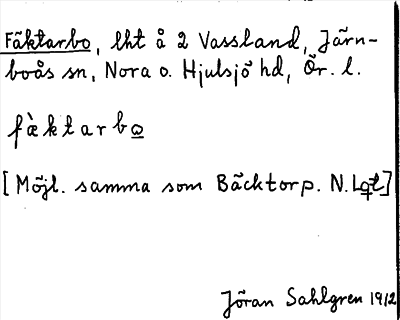 Fäktarbo, lht å 2 Vassland, Järn-
boås sn, Nora o. Hjulsjö hd, Ör. l.
fæ̀ktarbω
[Möjl. samma som Bäcktorp. N. Lqt]
Jöran Sahlgren 1912